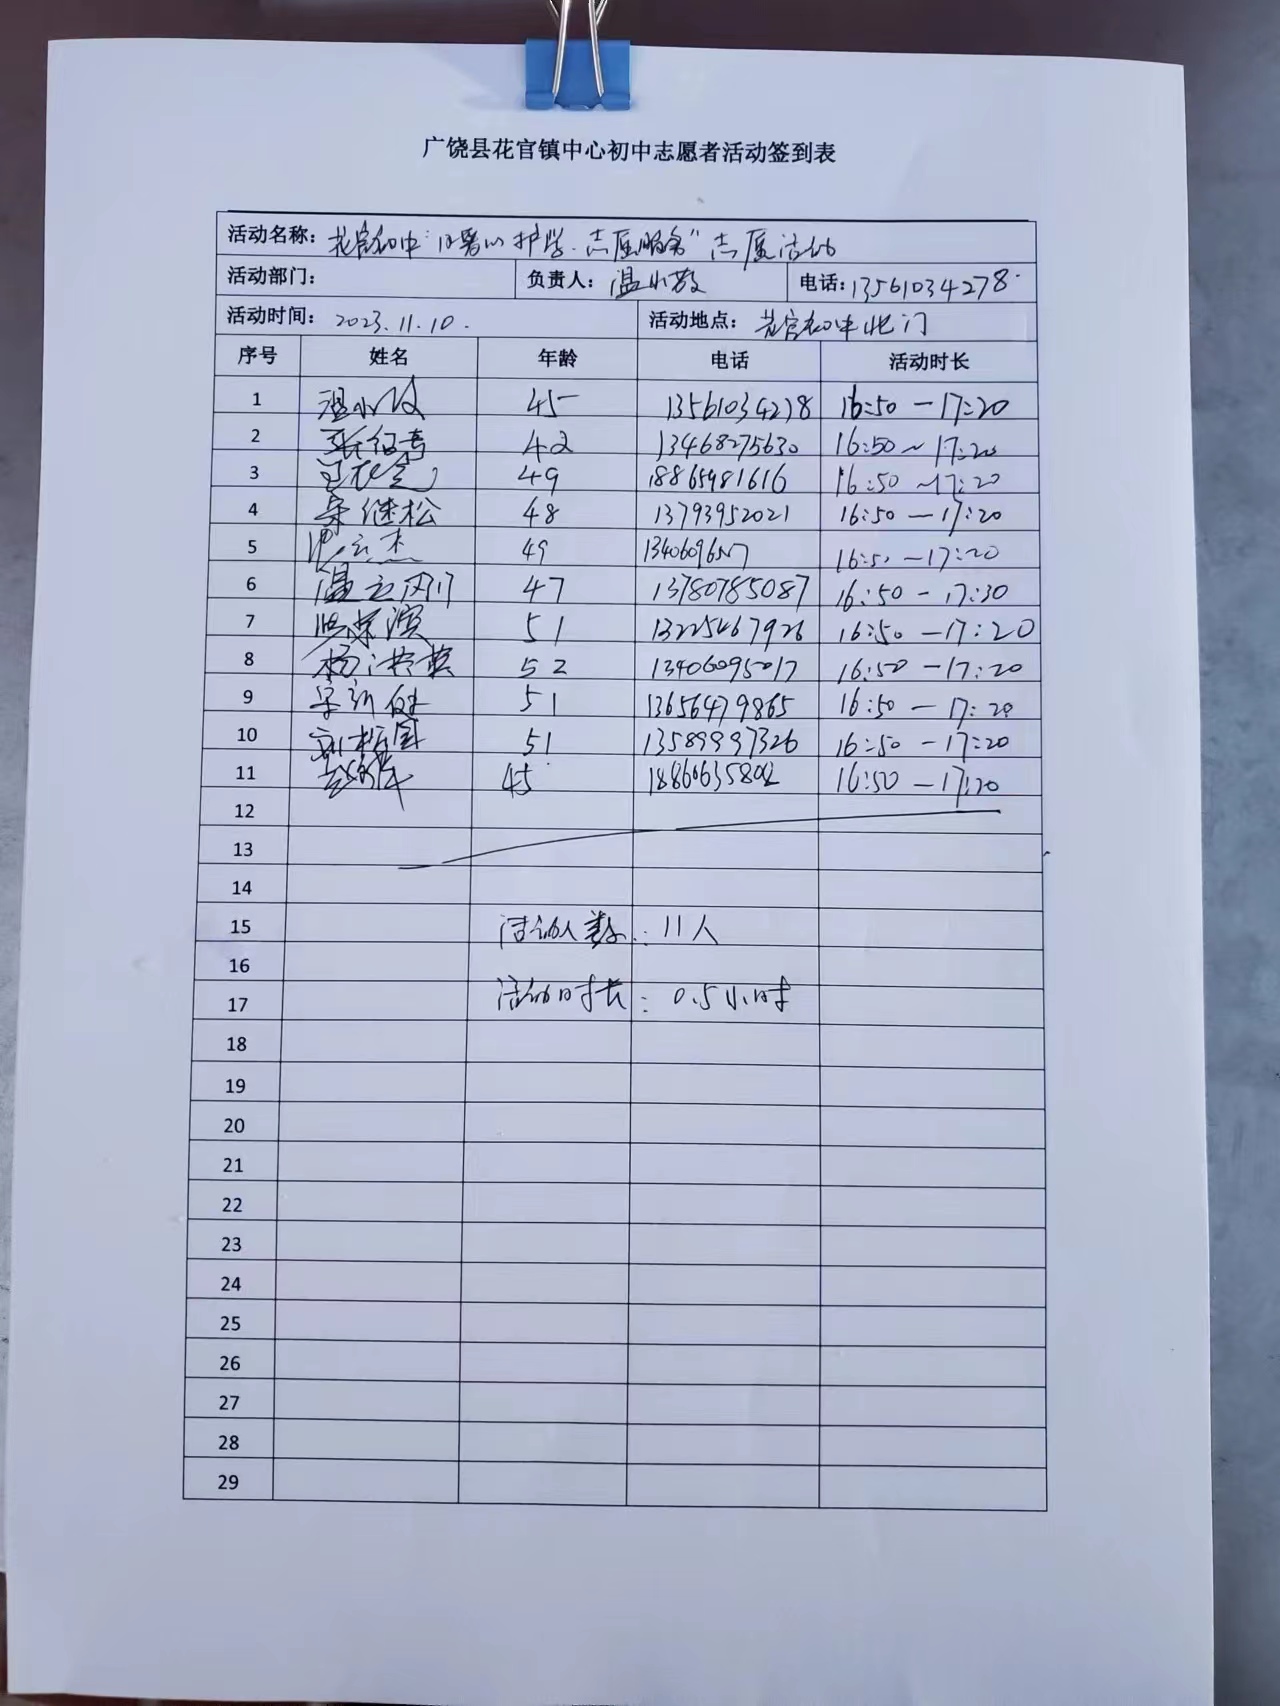 广饶县花官镇中心初中志愿者活动签到表
活动名称：花官初中" 护学 志愿服务"志愿活动
活动部门： 负责人：温小 电话：13561034278
活动时间：2023.11.10. 活动地点：花官初中北门
序号 姓名 年龄 电话 活动时长
1 温小 45 13561034278 16:50—17:20
2 张 42 13468275630 16:50~17:20
3 49 18865981616 16:50~17:20
4 继松 48 13793952021 16:50—17:20
5 杰 49 16:50—17:20
6 温立刚 47 13780785087 16:50—17:30
7 滨 51 13225467926 16:50—17:20
8 杨洪英 52 13406095017 16:50—17:20
9 新健 51 13656479865 16:50—17:20
10 刘 国 51 13589997326 16:50—17:20
11 45 16:50—17:20
12
13
14
15 活动人数：11人
16
17 活动时长：0.5小时
18
19
20
21
22
23
24
25
26
27
28
29